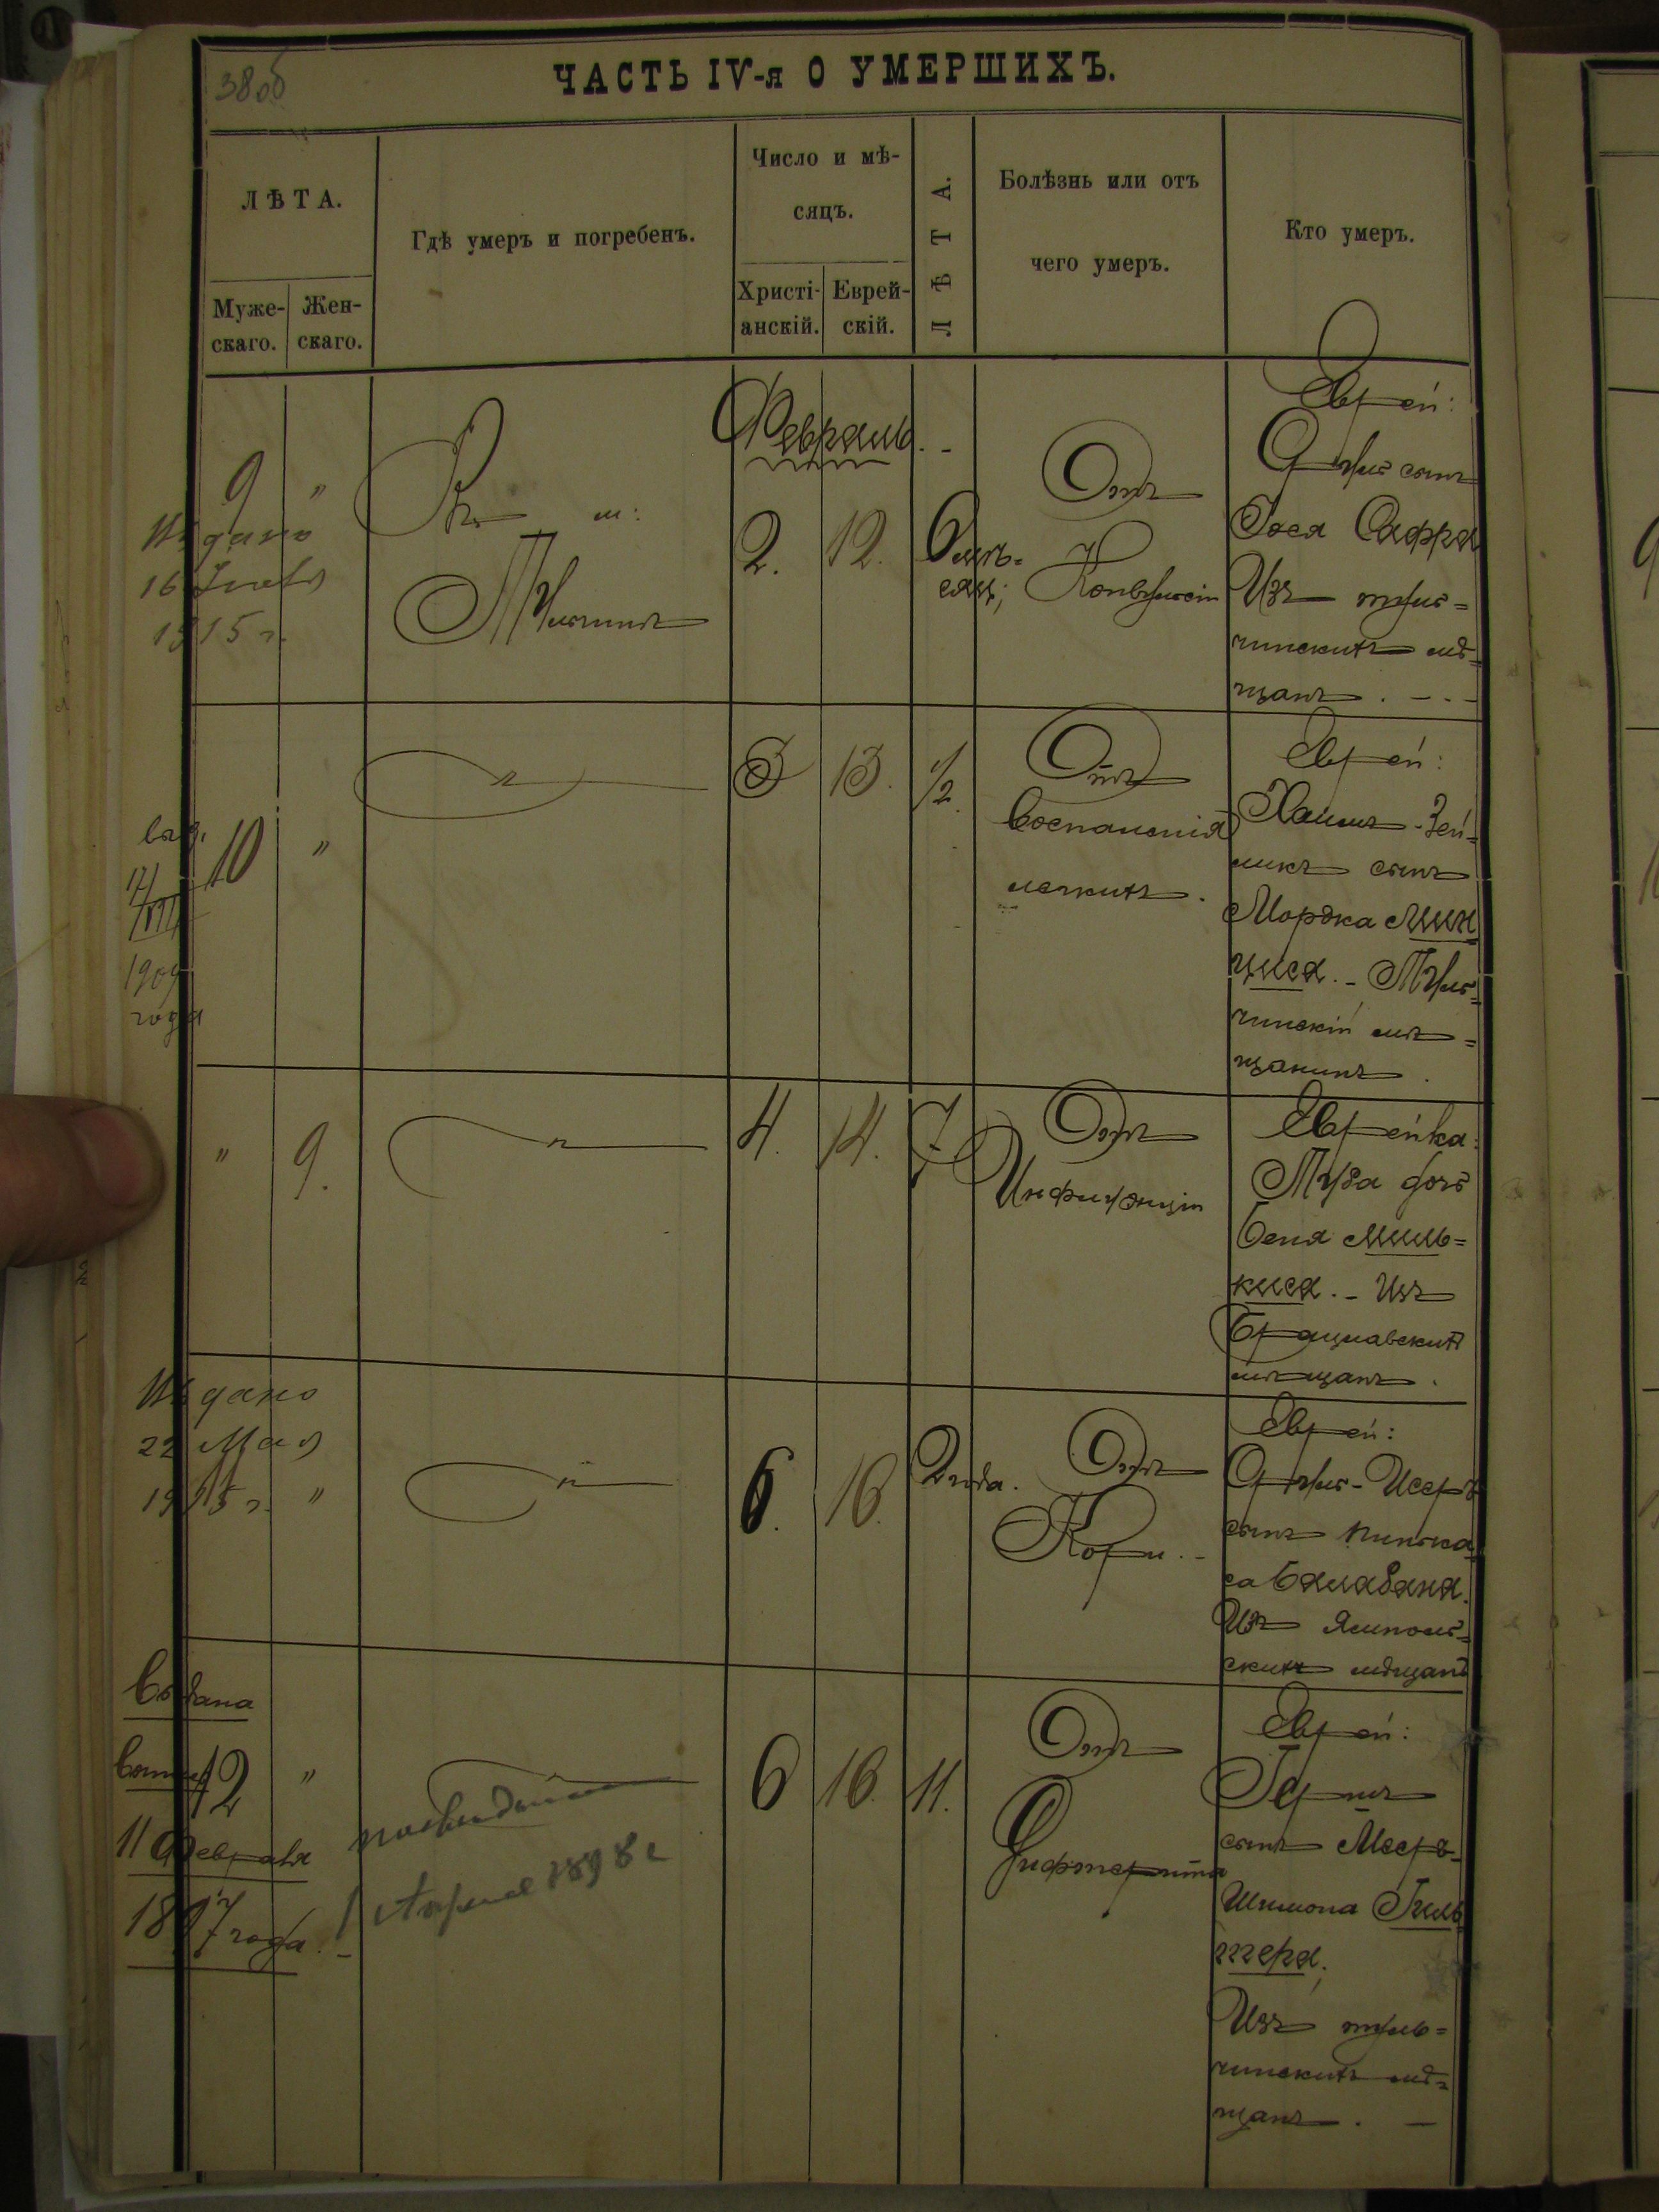 38об
ЧАСТЬ IV-я О УМЕРШИХЪ.
ЛѢТА.
Муже-
скаго.
Жен-
скаго.
Гдѣ умеръ и погребенъ.
Число и мѣ-
сяцъ.
Христі-
анскій.
Еврей-
скій.
ЛѢТА.
Болѣзнь или отъ
чего умеръ.
Кто умеръ.
Февраль.
9 "
Выдано
16
1915 г.
Въ м:
Тульчинѣ
2. 12.
6 мѣ=
сяц;
Отъ
Конвульсіи
Еврей:
Сруль сынъ
Іося Сафра
Изъ туль=
чинскихъ мѣ=
щанъ.
выд.
17/VIII
1909
года
10 "
"
3 13. 1/2
Отъ
Воспаленія
легкихъ.
Еврей:
Хаимъ-Зей=
ликъ сынъ
Мордка Мин
циса. - Туль=
чинскій мѣ=
щанинъ.
" 9.
"
4. 14. 7
Отъ
Инфлуэнціи
Еврейка:
Туба дочь
Беня Миль=
киса. - Изъ
Брацлавскихъ
мѣщанъ.
Выдано
22 Мая
1915 г. "
"
6. 16.
2 года.
Отъ
Кори. -
Еврей:
Сруль-Исеръ
сынъ Пинька
са Балабана.
Изъ Ямполь=
скихъ мѣщанъ
Выдана
12 "
11 Февраля
1897 года.
1 Апреля 1898 г
6 16. 11.
Отъ
Дифтерита
Еврей:
сынъ Меер-
Шимона Гиль
тера.
Изъ туль=
чинскихъ мѣ=
щанъ. -